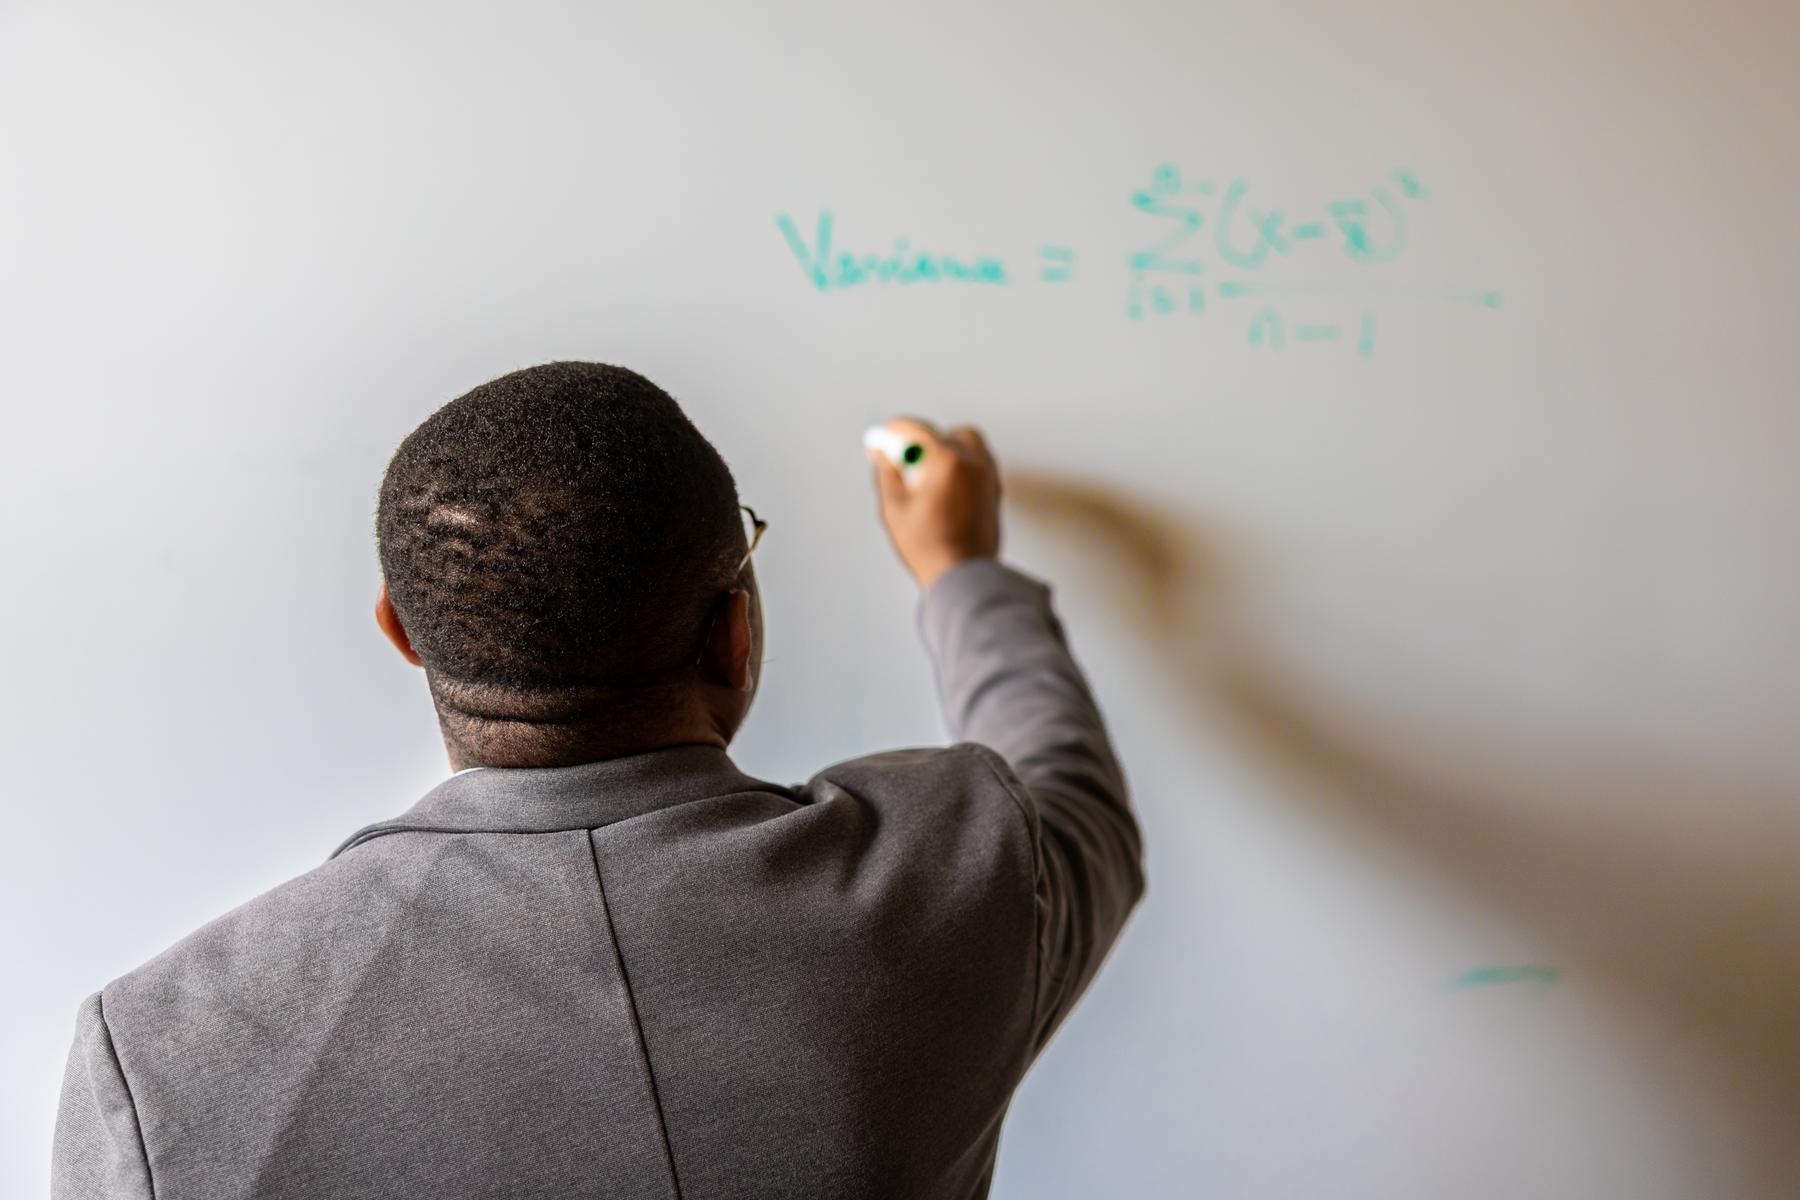 Variance = n ∑ i=1 (x - x̄)² / n - 1